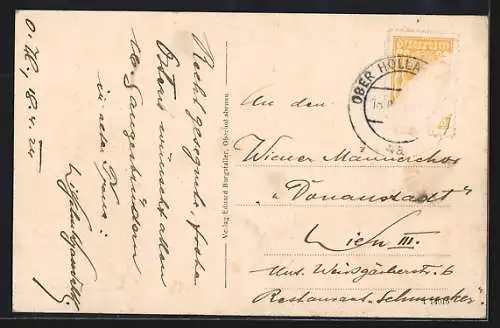 O. H., 18. 4. 24
Recht gesegnete, frohe
Ostern wünscht allen
lb. Sangesbrüdern
in alter Treue:
Verlag Eduard Burgstaller, Oberhollabrunn.
OBER HOLLA
An den
Wiener Männerchor
"Donaustadt"
Wien III.
Unt. Weißgärberstr. 6
Restaurant "Schmucker"